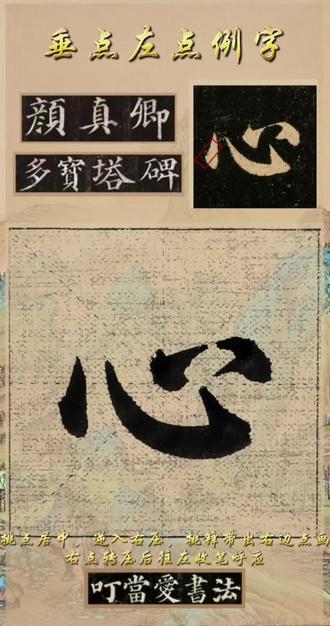 垂点左点例字
顔真卿
多寶塔碑
心
心
挑点居中，逆入右压，挑锋带出右边点画
右点转压后往左收笔呼应
叮當愛書法